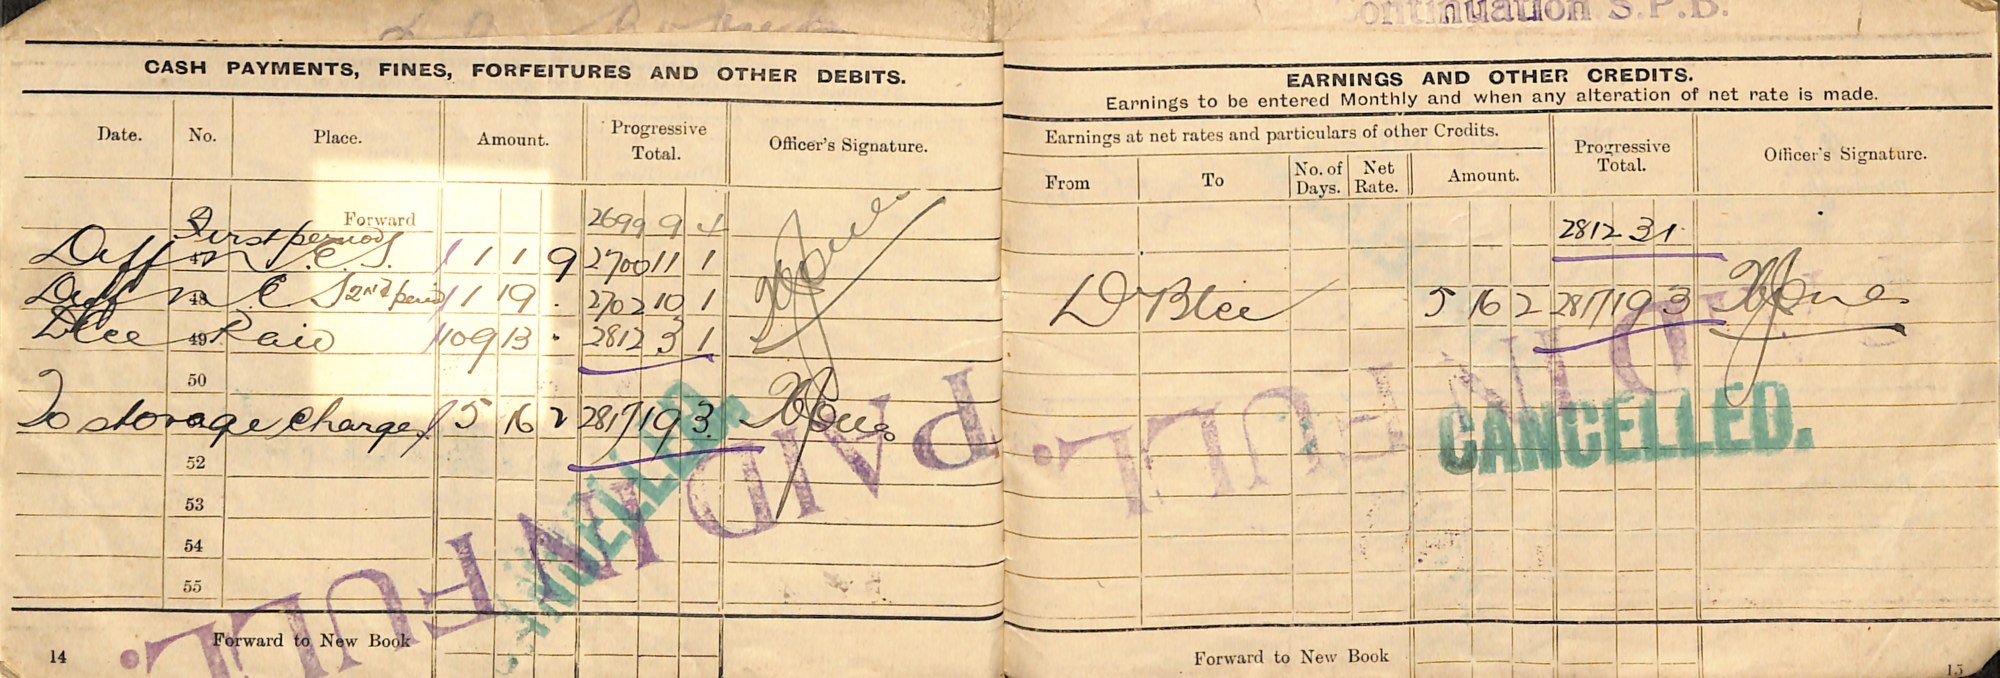 ontinuation S.P.B.
CASH PAYMENTS, FINES, FORFEITURES AND OTHER DEBITS.
Date. No. Place. Amount. Progressive Total. Officer's Signature.
Forward 2699 9 4
First period
Diff 47 in C.S. 1 1 9 2700 11 1
Diff 48 in C S 2nd period 1 19 . 2702 10 1
Blce 49 Paid 109 13 . 2812 3 1
50
To storage charges 5 16 2 2817 19 3
52
53
54
55
Forward to New Book
14
PAID IN FULL.
CANCELLED.
EARNINGS AND OTHER CREDITS.
Earnings to be entered Monthly and when any alteration of net rate is made.
Earnings at net rates and particulars of other Credits. Progressive Total. Officer's Signature.
From To No. of Days. Net Rate. Amount.
2812 3 1
Dr Blce 5 16 2 2817 19 3
PAID IN FULL.
CANCELLED.
Forward to New Book
15